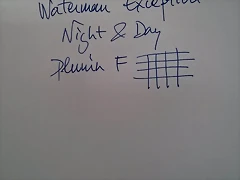 Waterman Exception
Night & Day
Plumin F